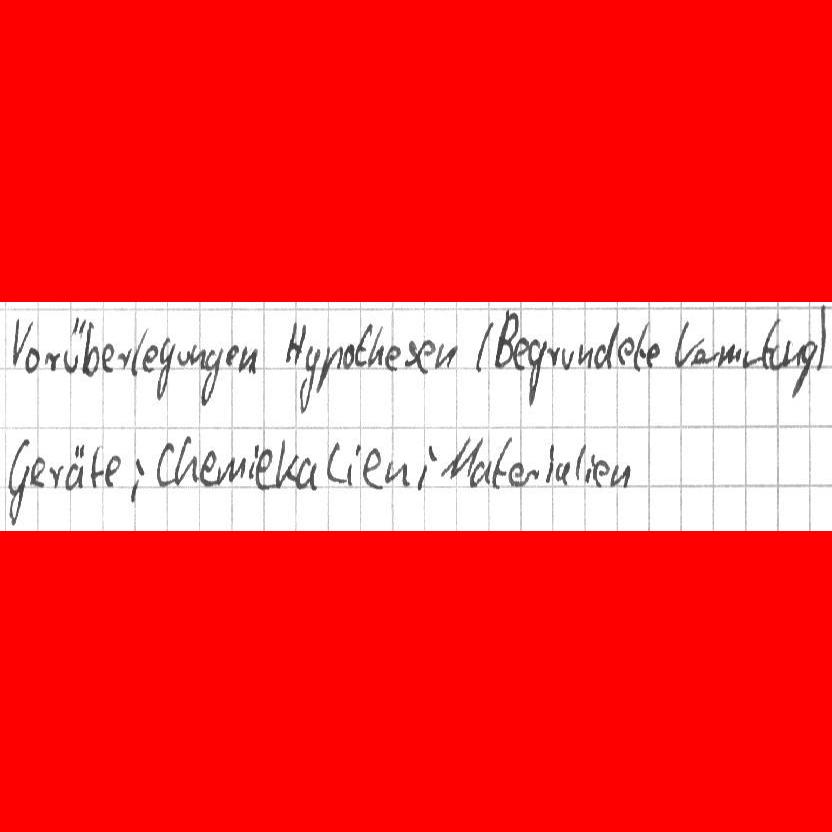 Vorüberlegungen Hypothesen (Begrundete Vermutung)
Geräte; Chemiekalien; Materialien